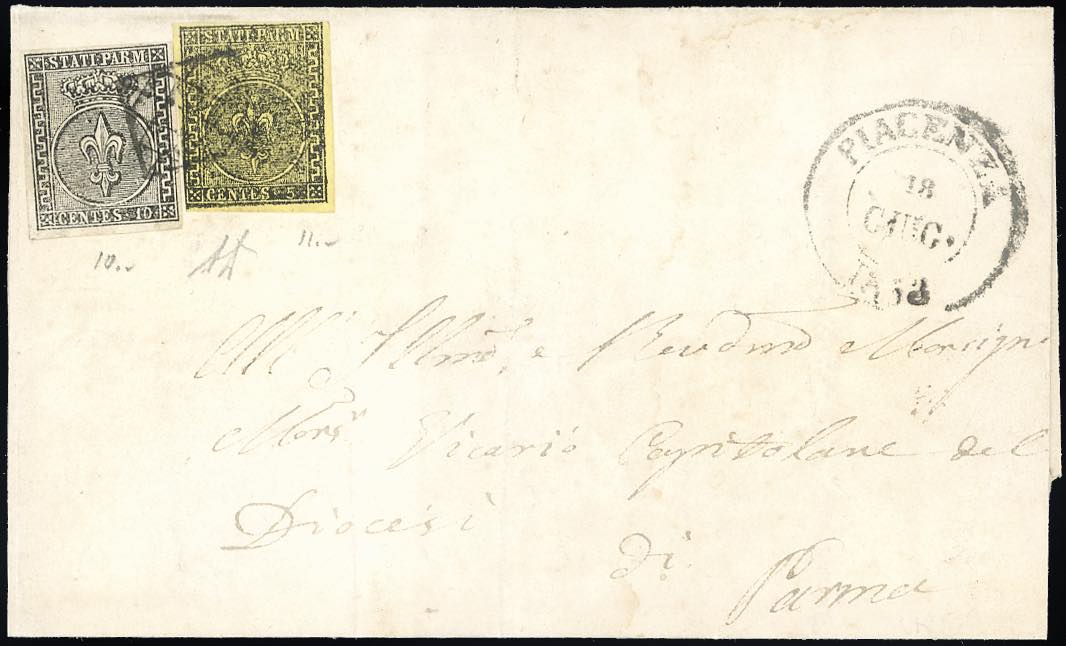 STATI PARM
CENTES 10
STATI PARM
CENTES 5
10..
11..
PIACENZA
18
GIUG.
1853
All' Illmo e Revdmo Monsigne
Monsr Vicario Capitolare del
Diocesi
di
Parma